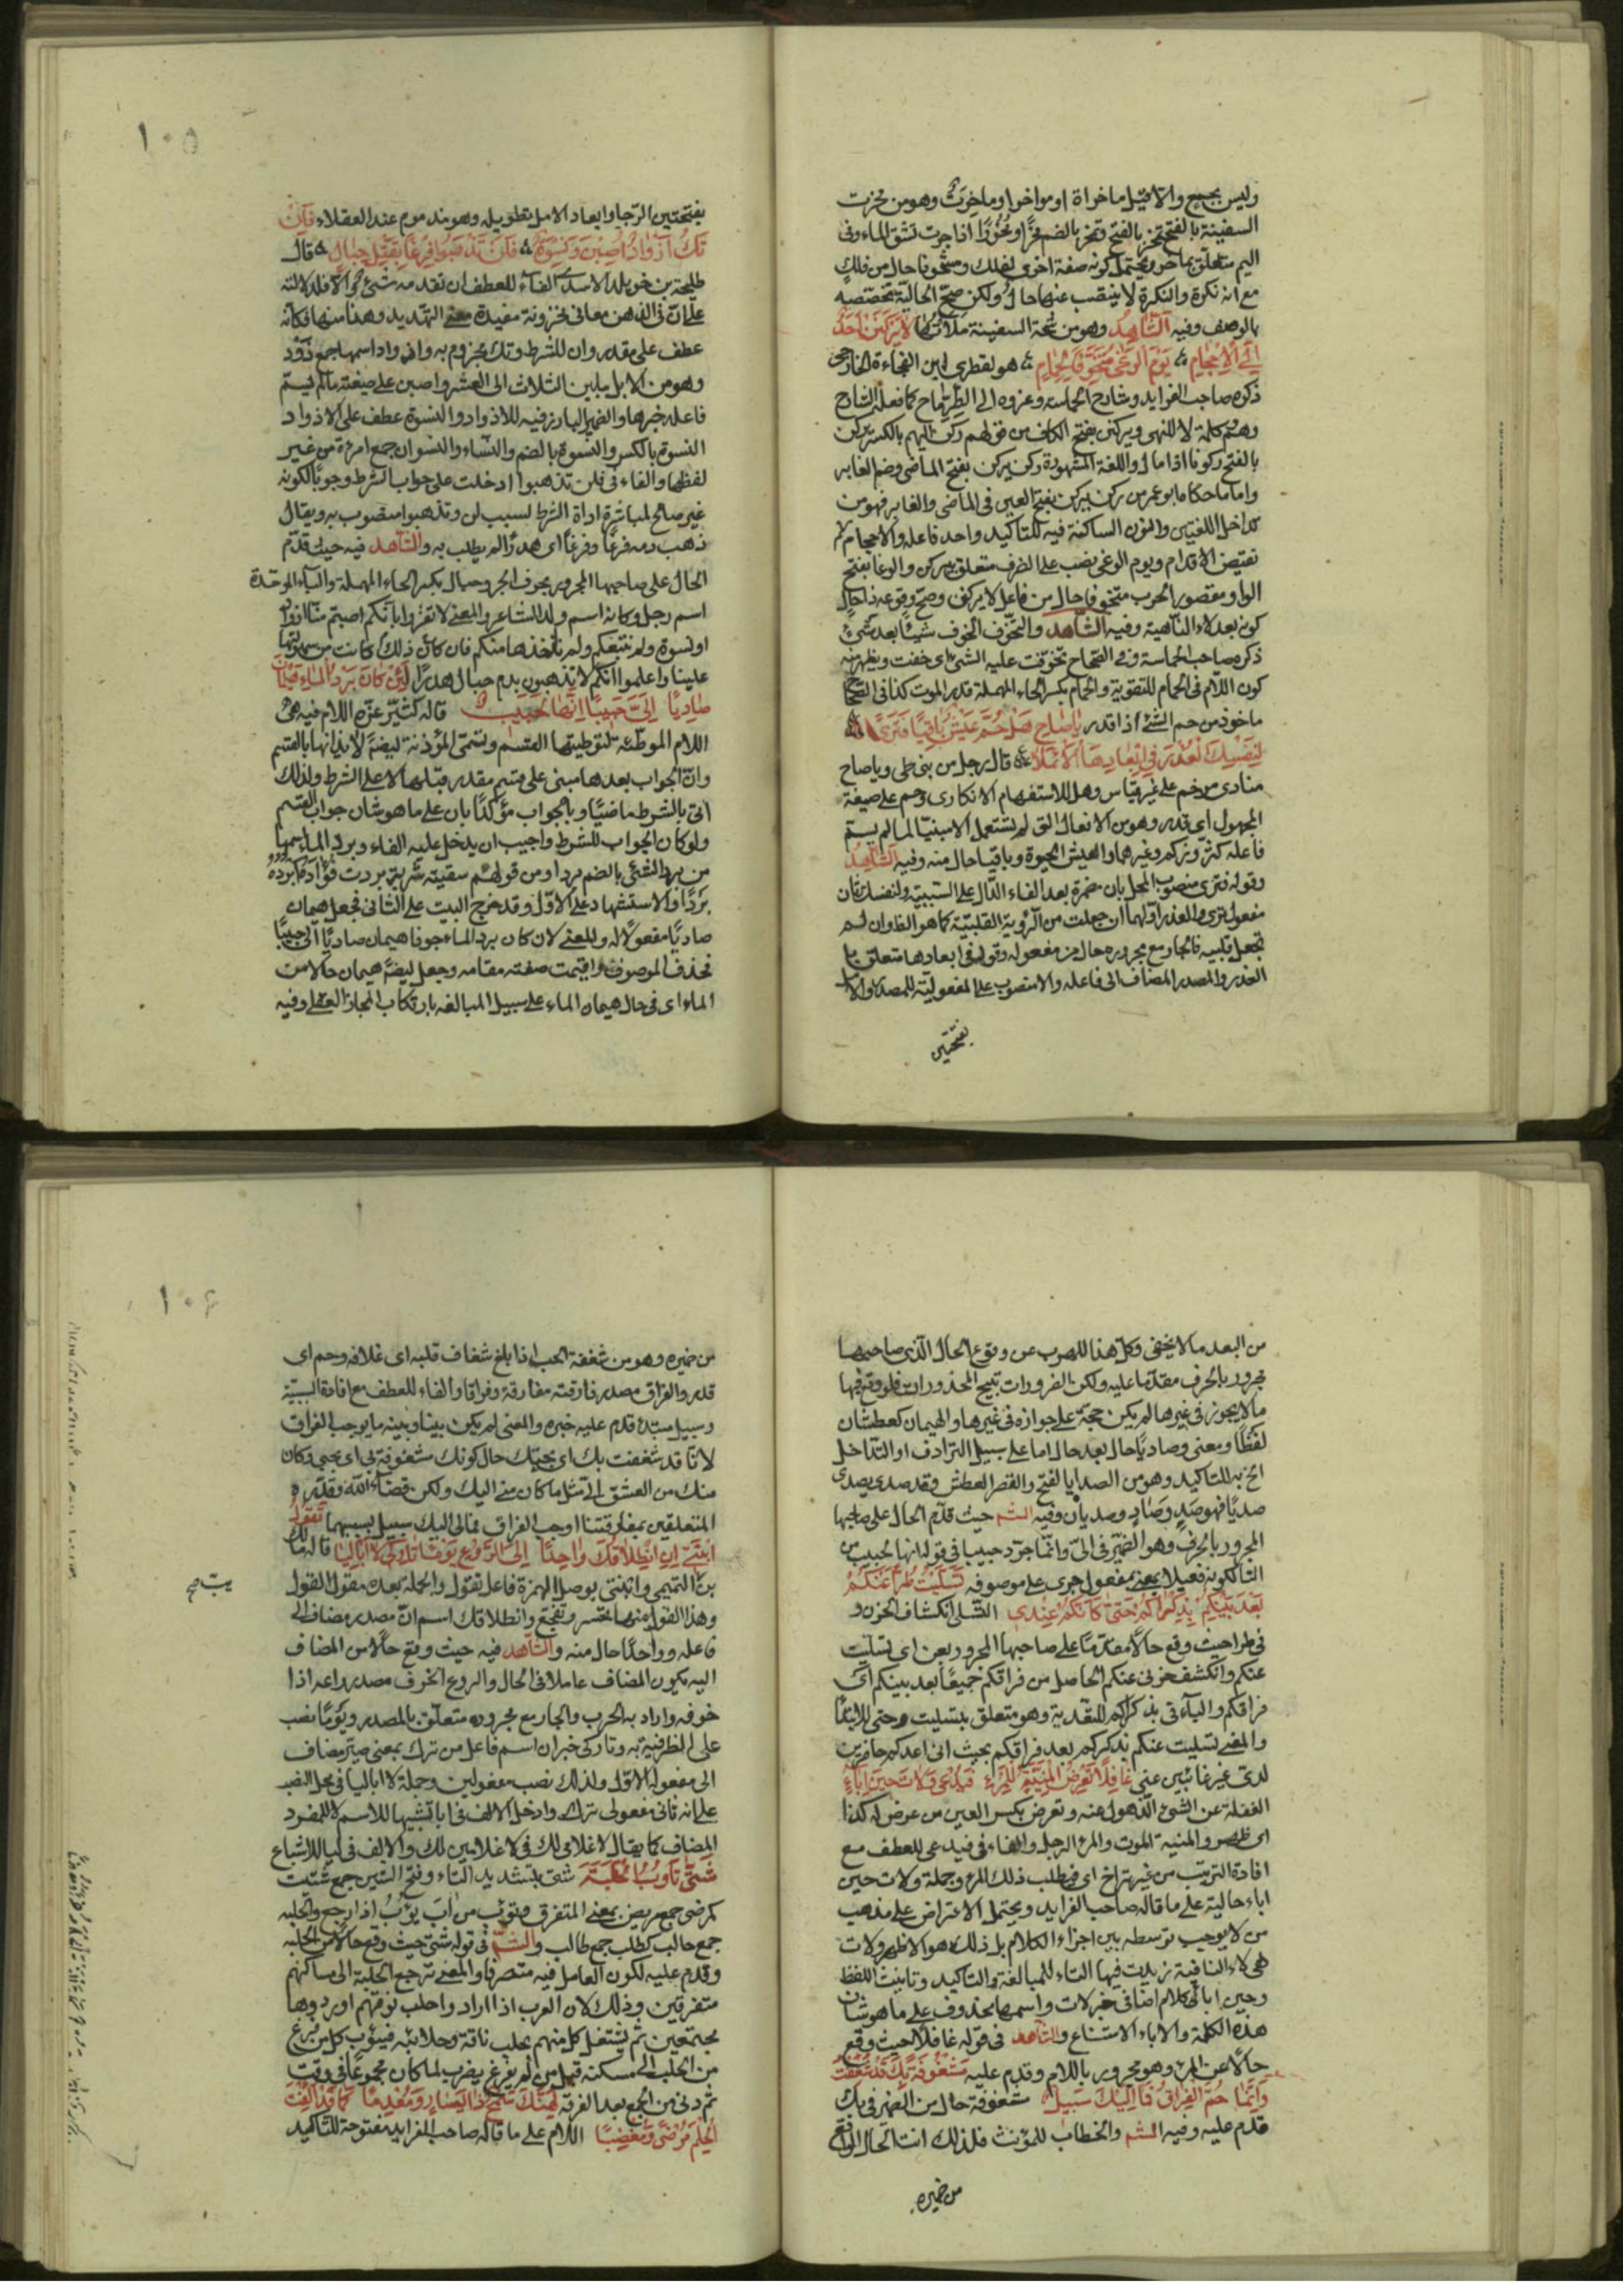 وليس بجمع والا لقيل ماخراة او مواخر او ماخرت وهو من مخرت
السفينة بالفتح تمخر بالفتح وتمخر بالضم مخرًا ومخورًا اذا جرت تشق الماء وفى
اليم متعلق بماخر ويحتمل كونه صفة اخرى لفلك ومشحونا حال من فلك
مع انه نكرة والنكرة لا ينتصب عنها حال ولكن صح الحالية تخصصه
بالوصف وفيه الشاهد وهو من شحنة السفينة ملأتها لا يركنن احد
الى الاحجام يوم الوغى متخوفا لحمام هو لقطرى بن الفجاءة الخارجى
ذكره صاحب الفرايد وشارح الحماسه وعزوه الى الطرماح كما فعله الشارح
وهم كلمة لا للنهى ويركنن بفتح الكاف من قولهم ركن اليهم بالكسر يركن
بالفتح ركونا اذا مال واللغة المشهورة ركن يركن بفتح الماضى وضم الغابر
واما ما حكاه ابو عمرو من ركن يركن بفتح العين فى الماضى والغابر فهو من
تداخل اللغتين والنون الساكنة فيه للتاكيد واحد فاعله والاحجام
نقيض الاقدام ويوم الوغى نصب على الظرف متعلق بيركن والوغا بفتح
الواو مقصور الحرب متخوفا حال من فاعل لا يركنن وصح وقوعه ذا حال
كونه بعد لاء الناهية وفيه الشاهد والتخوف الخوف شيئًا بعد شئ
ذكره صاحب الحماسة وفى الصحاح تخوفت عليه الشئ اى خفت ويظهر منه
كون اللام فى الحمام للتقوية والحمام بكسر الحاء المهملة قدر الموت كذا فى الصحاح
ماخوذ من حم الشئ اذا قدر يا صاح هل حم عيش باقيا فترى
لنفسك العذر فى ابعادها الاملا قال رجل من بنى طى ويا صاح
منادى مرخم على غير قياس وهل للاستفهام الانكارى وحم على صيغة
المجهول اى قدر وهو من الافعال التى لم تستعمل الا مبنيا لما لم يسم
فاعله كثر وزكم وغيرهما والعيش الحيوة وباقيا حال منه وفيه الشاهد
وقوله فترى منصوب المحل بان مضمرة بعد الفاء الدال على السببية ولنفسك ثان
مفعول ترى والعذر اولهما ان جعلت من الرؤية القلبية كما هو الظ وان لم
تجعل قلبيه فالجار مع مجروره حال من مفعوله وقوله فى ابعادها متعلق با
العذر والمصدر المضاف الى فاعله والا منصوب على المفعولية للمصدر والامل
بفتحتين
١٠٥
بفتحتين الرجا وابعاد الامل بتطويله وهو مذموم عند العقلاء فان
تك اذواد اصبن ونسوة فلن تذهبوا فرغا بقتل حبال قال
طليحة بن خويلد الاسدى الفاء للعطف ان تقدمه شئ والا فلدلالته
على ان فى الذهن معانى مخزونة مفيدة معنى التهديد وهذا منها فكانه
عطف على مقدر وان للشرط وتك مجزوم به واذواد اسمها جمع ذود
وهو من الابل ما بين الثلاث الى العشر واصبن على صيغة ما لم يسم
فاعله خبرها والضمير البارز فيه للاذواد والنسوة عطف على الاذواد
النسوة بالكسر والنسوة بالضم والنساء والنسوان جمع امرءة من غير
لفظها والفاء فى فلن تذهبوا ادخلت على جواب الشرط وجوبًا لكونه
غير صالح لمباشرة اداة الشرط لسبب لن وتذهبوا منصوب به ويقال
ذهب دمه فرغًا وفرغًا اى هدرًا لم يطلب به والشاهد فيه حيث قدم
الحال على صاحبها المجرور بحرف الجر وحبال بكسر الحاء المهملة والباء الموحدة
اسم رجل وكانه اسم ولد الشاعر والمعنى لا تغتروا بانكم اصبتم منا اذوادا
او نسوة ولم نتبعكم ولم ناخذها منكم فان كان ذلك كانت من سهولتها
علينا واعلموا انكم لا تذهبون بدم حبال هدرًا لئن كان برد الماء هيمان
صاديا الى حبيبا انها لحبيب قاله كثير عزة اللام فيه هى
اللام الموطئة لتوطيتها القسم وتسمى المؤذنة ايضًا لايذانها بالقسم
وان الجواب بعدها مبنى على قسم مقدر قبلها لا على الشرط ولذلك
اتى بالشرط ماضيًا وبالجواب مؤكدًا بان على ما هو شان جواب القسم
ولو كان الجواب للشرط واجيب ان يدخل عليه الفاء وبرد الماء اسمها
من برد الشئ بالضم بردا ومن قولهم سقيته شربة بردت فؤاده تبرده
بردًا والاستشهاد على الاول وقد خرج البيت على الثانى فجعل هيمان
صاديًا مفعولًا له والمعنى لان كان برد الماء جوفا هيمان صاديًا الى حبيبًا
فحذف الموصوف واقيمت صفته مقامه وجعل ايضًا هيمان حالا من
الماء اى فى حال هيمان الماء على سبيل المبالغه بارتكاب المجاز العقلى وفيه
من البعد ما لا يخفى وكل هذا للهرب عن وقوع الحال الذى صاحبها
مجرور بالحرف مقدمًا عليه ولكن الضرورات تبيح المحذورات فلو وقع فيها
ما لا يجوز فى غيرها لم يكن حجة على جوازه فى غيرها والهيمان كعطشان
لفظًا ومعنى وصاديًا حال بعد حال اما على سبيل الترادف او التداخل
اتى به للتاكيد وهو من الصدا بالفتح والقصر العطش وقد صدى يصدى
صديًا فهو صدٍ وصادٍ وصديان وفيه الشم حيث قدم الحال على صاحبها
المجرور بالحرف وهو الضمير فى الى وانما جرد حبيبا فى قوله انها لحبيب من
التا لكونه فعيلا بمعنى مفعول جرى على موصوفه تسليت طرا عنكم
بعد بينكم بذكراكم حتى كانكم عندى التسلى انكشاف الحزن و
فى طرا حيث وقع حالًا مقدمًا على صاحبها المجرور بعن اى تسليت
عنكم وانكشف حزنى عنكم الحاصل من فراقكم جميعًا بعد بينكم اى
فراقكم والباء فى بذكراكم للتعدية وهو متعلق بتسليت وحتى للابتدا
والمعنى تسليت عنكم بذكركم بعد فراقكم بحيث انى اعدكم حاضرين
لدى غير غائبين عنى غافلا تعرض المنية للمرء فيدعى ولات حين اباء
الغفلة عن الشئ الذهول عنه وتعرض بكسر العين من عرض له كذا
اى ظهر والمنية الموت والمرء الرجل والفاء فى فيدعى للعطف مع
افادة الترتيب من غير تراخ اى فيطلب ذلك المرء وجملة ولات حين
اباء حالية على ما قاله صاحب الفرايد ويحتمل الاعتراض على مذهب
من لا يوجب توسطه بين اجزاء الكلام بل ذلك هو الاظهر ولات
هى لاء النافية زيدت فيها التاء للمبالغة والتاكيد وتانيث اللفظ
وحين اباء كلام اضافى خبر لات واسمها محذوف على ما هو شان
هذه الكلمة والاباء الامتناع والشاهد فى قوله غافلا حيث وقع
حالًا عن المرء وهو مجرور باللام وقدم عليه مشغوفة بك قد شغفت
وانما حم الفراق فما اليك سبيل مشغوفة حال من الضمير فى بك
قدم عليه وفيه الشم والخطاب للمؤنث فلذلك انث الحال الواقع
من ضميره
١٠٦
من ضميره وهو من شغفه الحب اذا بلغ شغاف قلبه اى غلافه وحم اى
قدر والفراق مصدر فارقته مفارقة وفراقا والفاء للعطف مع افادة السببية
وسبيل مبتدء قدم عليه خبره والمعنى لم يكن بيننا وبينه ما يوجب الفراق
لانا قد شغفت بك اى بحبك حال كونك مشغوفة بى اى بحبى وكان
منك من العشق الى مثل ما كان منى اليك ولكن قضاء الله وقدره
المتعلقين بمفارقتنا اوجب الفراق فمالى اليك سبيل بسببهما تقول
ابنتى ان انطلاقك واحدا الى الروع يوما تاركى لا اباليا قاله مالك
بن التميمى وابنتى بوصل الهمزة فاعل تقول والجملة بعده مقول القول
وهذا القول منها تحسر وتفجع وانطلاقك اسم ان مصدر مضاف الى
فاعله وواحدًا حال منه والشاهد فيه حيث وقع حالًا من المضاف
اليه بكون المضاف عاملا فى الحال والروع الخوف مصدر راعه اذا
خوفه واراد به الحرب والجار مع مجروره متعلق بالمصدر ويومًا نصب
على الظرفية به وتاركى خبر ان اسم فاعل من ترك بمعنى صير مضاف
الى مفعوله الاول ولذلك نصب مفعولين وجملة لا اباليا فى محل النصب
على انه ثانى مفعولى ترك وادخل الالف فى ابا تشبيها للاسم المفرد
المضاف كما يقال لا غلامى لك فى لا غلامين لك والالف فى ليا للاشباع
شتى تاوب الحلبة شتى بتشديد التاء وفتح الشين جمع شتيت
كمرضى جمع مريض بمعنى المتفرق وتؤب من اب يؤب اذا رجع والحلبه
جمع حالب كطلب جمع طالب والشم فى قوله شتى حيث وقع حالًا من الحلبه
وقدم عليه لكون العامل فيه متصرفا والمعنى ترجع الحلبة الى مساكنهم
متفرقين وذلك لان العرب اذا اراد واحلب نوقهم اوردوها
مجتمعين ثم يشتغل كل منهم بحلب ناقة وحلابته فيؤب كل من فرغ
من الحلب الى مسكنه قبل من لم يفرغ يضرب لما كان مجموعًا فى وقت
ثم دنى من الجمع بعد الفرقه لهنك سمح ذا يسار ومعدما كما قد الفت
الحلم مرضى ومغضبا اللام على ما قاله صاحب الفرايد مفتوحة للتاكيد